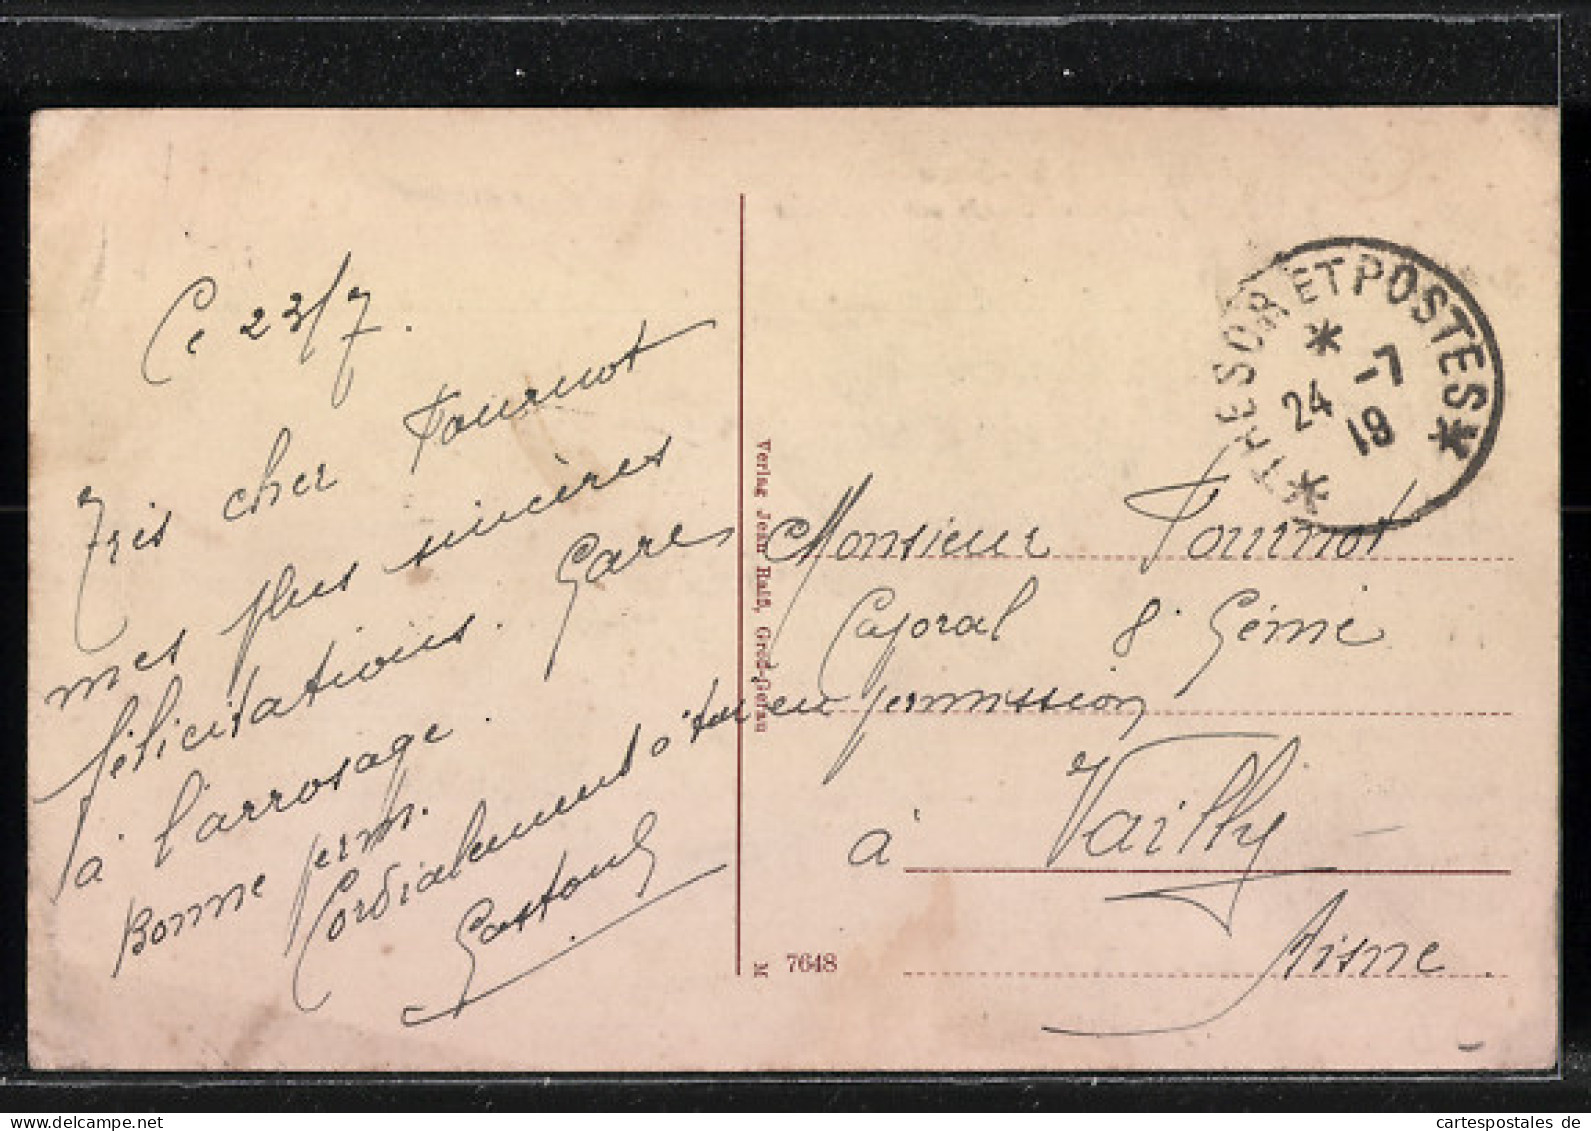 Ce 23/7.
Très cher Fournot
mes plus sincères
félicitations. Gare
à l'arrosage.
Bonne perm.
Cordialement à toi
Gaston
Verlag Jean Haiß, Groß-Gerau
M 7648
TRESOR ET POSTES
24 -7
19
Monsieur Fournot
Caporal 8e Génie
en permission
à Vailly
Aisne.
cartespostales de